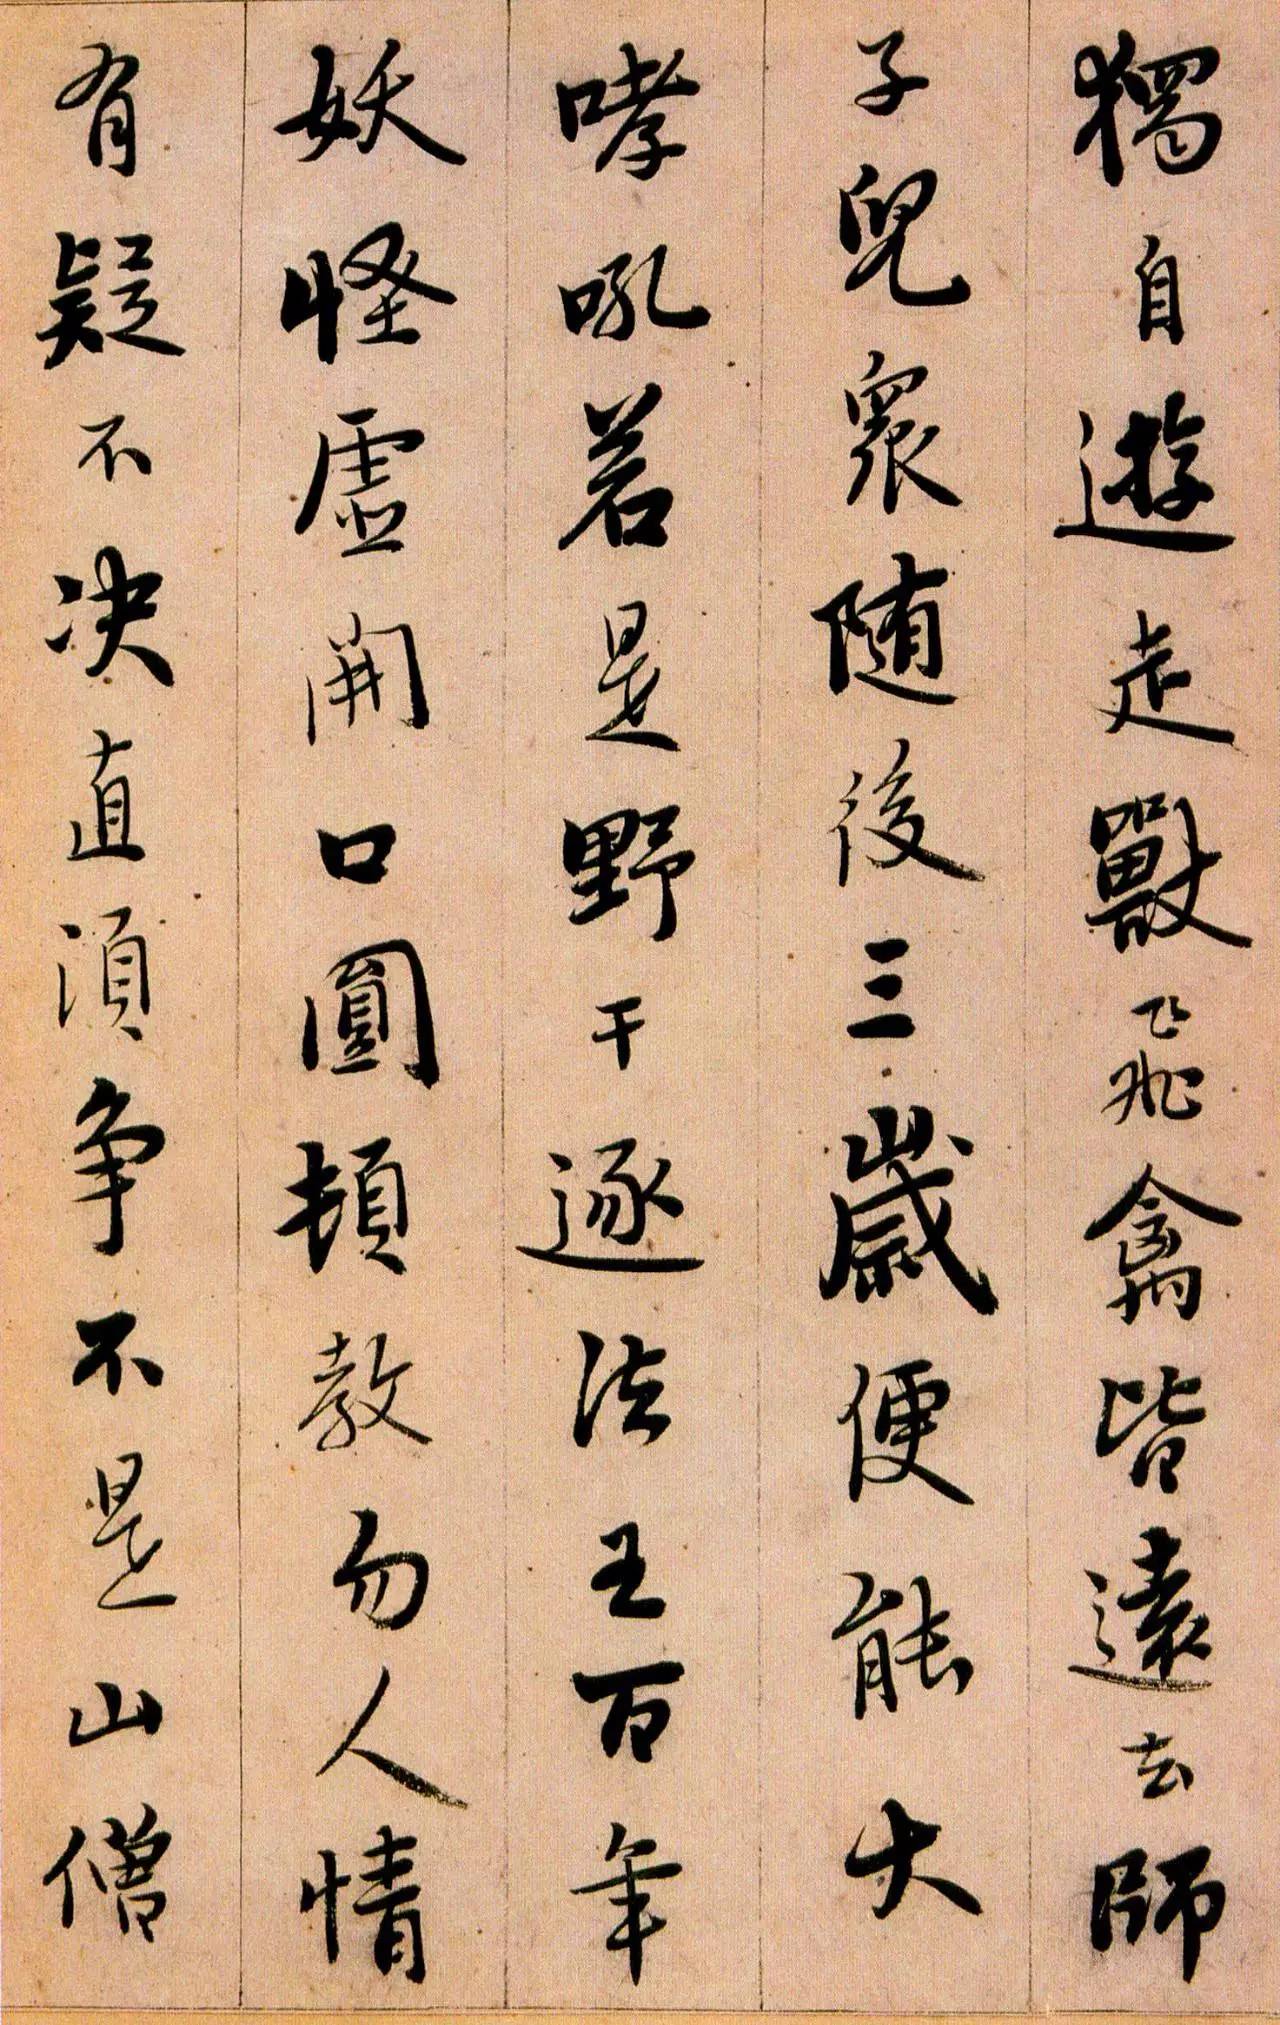 獨自遊走獸飛禽皆遠去師
子兒衆随後三歲便能大
哮吼若是野干逐法王百年
妖怪虛開口圓頓教勿人情
有疑不決直須争不是山僧